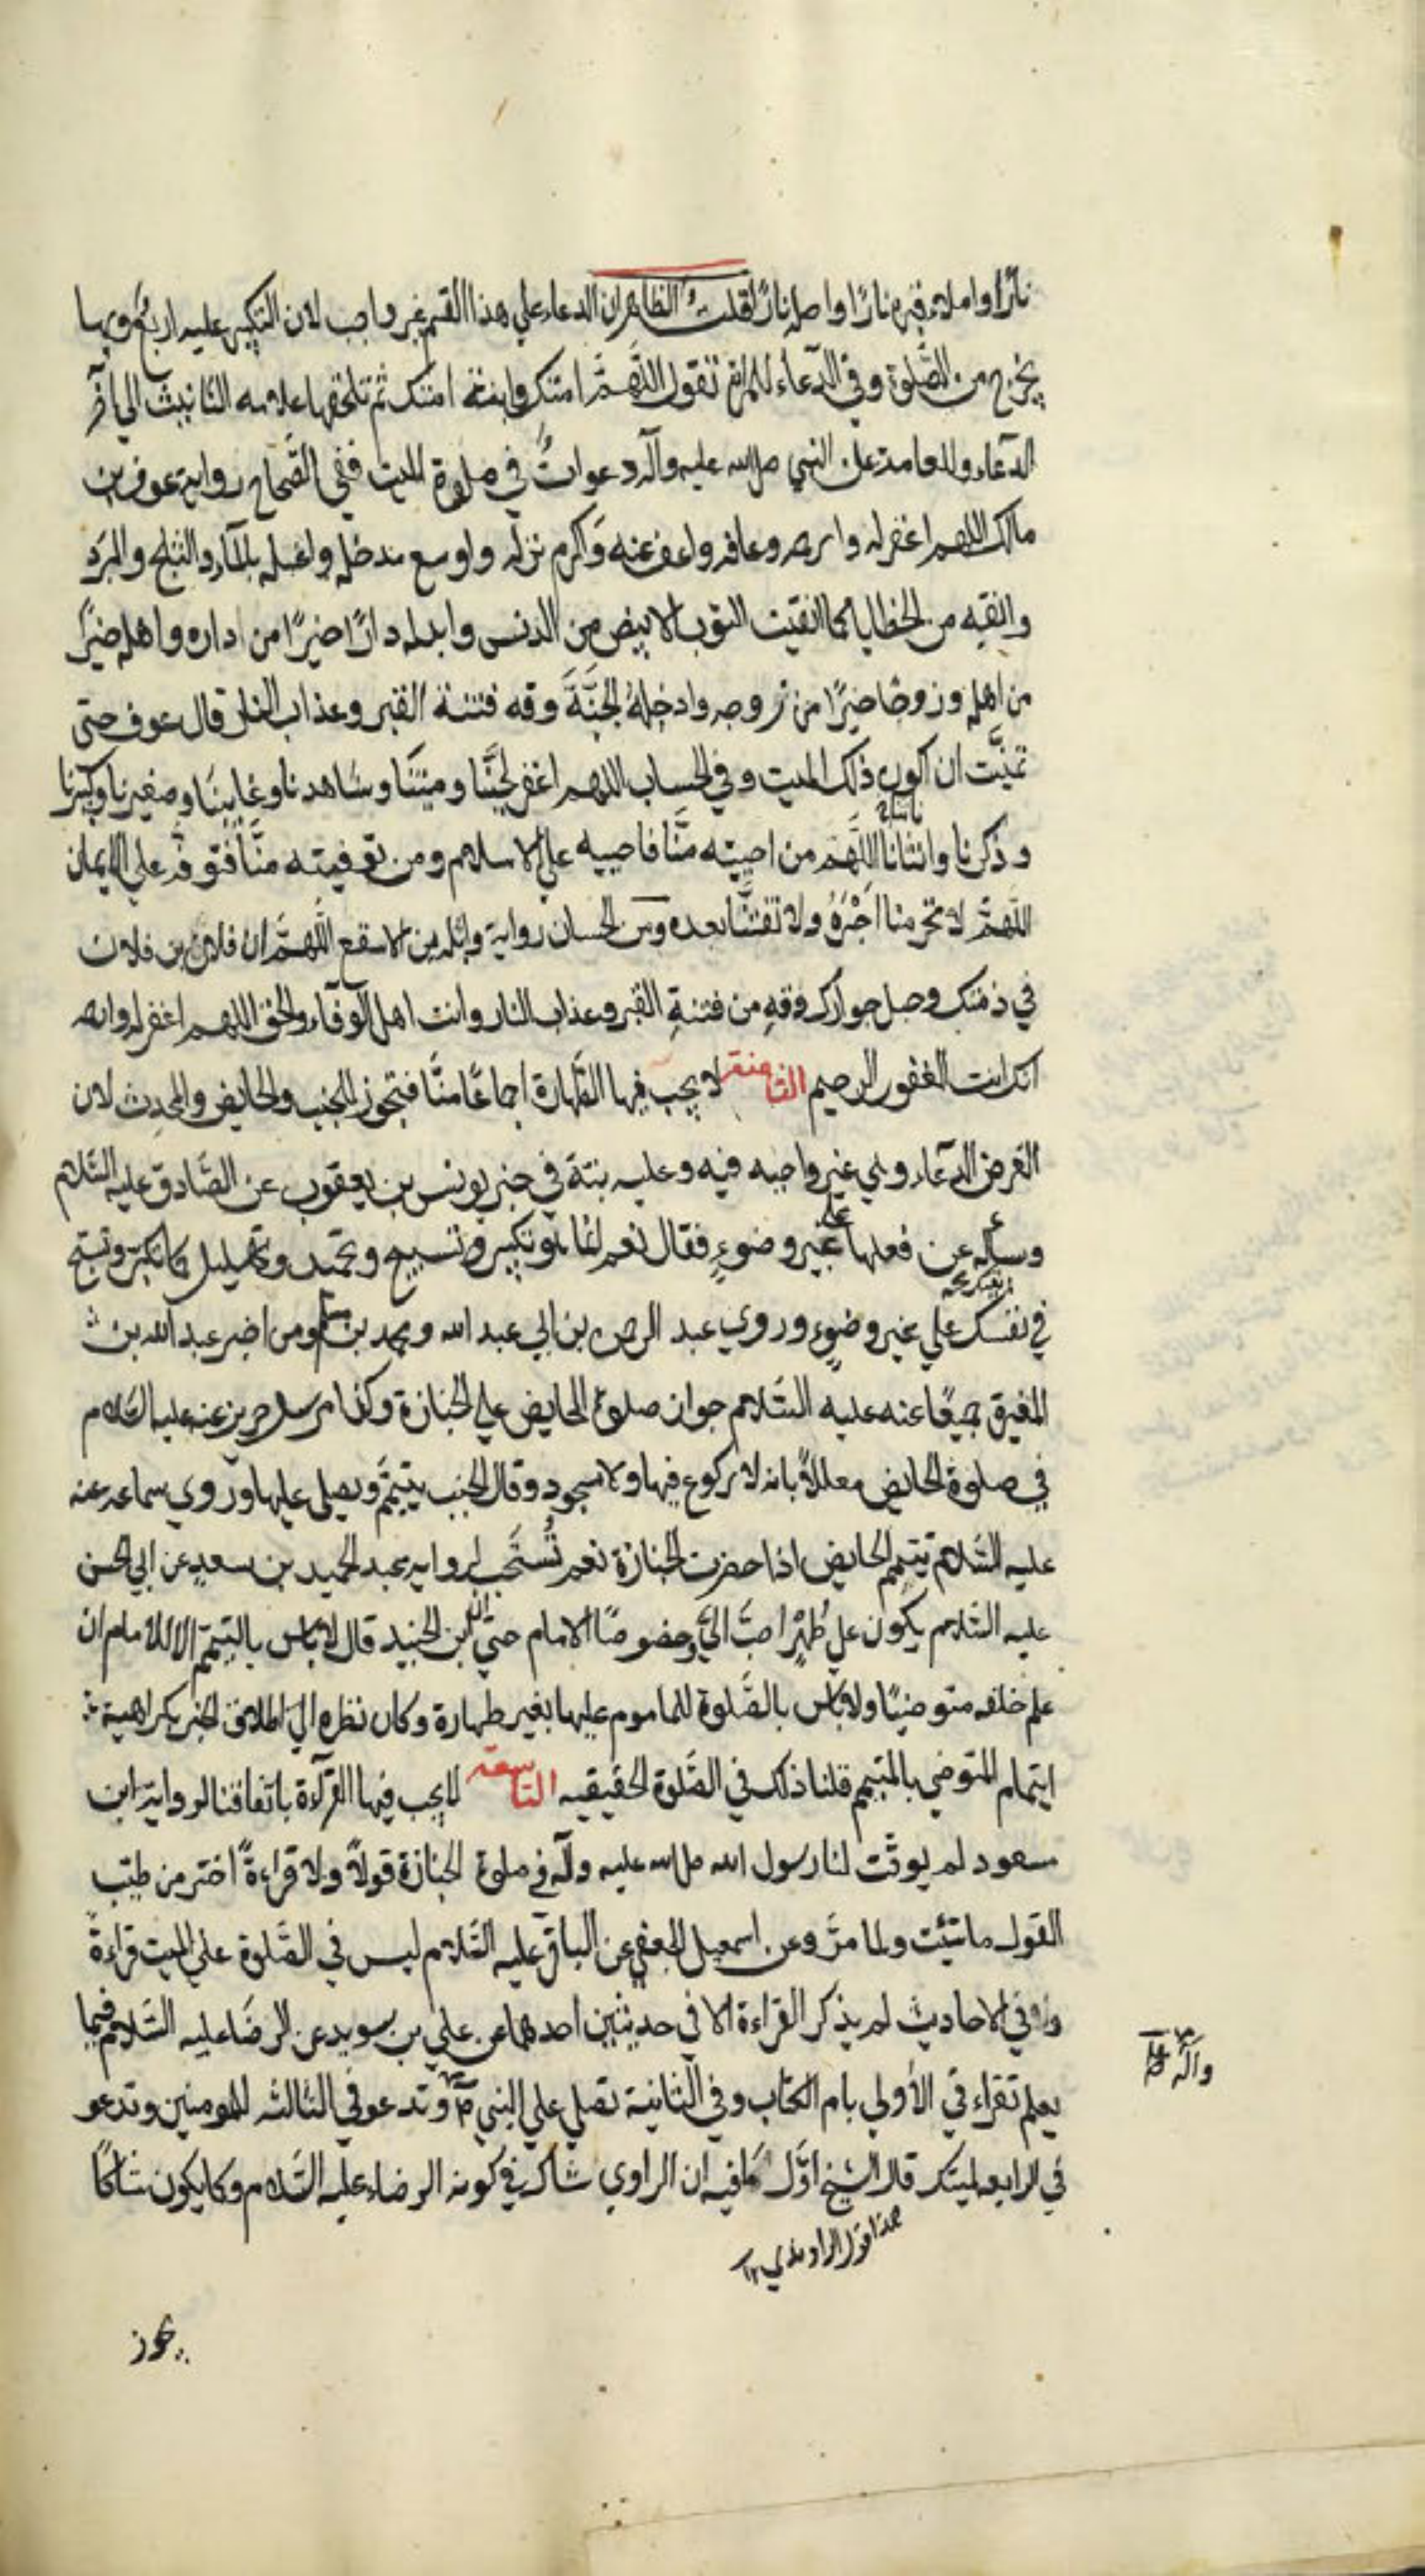 نارًا واملاء قبره نارًا واصله نارًا قلت الظاهر ان الدعاء علي هذا القسم غير واجب لان التكبير عليه اربع وبها
يخرج من الصلوة وفي الدعاء للمراة تقول اللهم امتك وابنة امتك ثم تلحقها علامه التانيث الي آخر
الدعاء وللعامة عن النبي صلى الله عليه وآله دعوات في صلوة الميت ففي الصحاح رواية عوف بن
مالك اللهم اغفر له وارحمه وعافه واعف عنه واكرم نزله واوسع مدخله واغسله بالماء والثلج والبرد
وانقه من الخطايا كما انقيت الثوب الابيض من الدنس وابدله دارًا خيرًا من داره واهله خيرًا
من اهله وزوجًا خيرًا من زوجه وادخله الجنة وقه فتنة القبر وعذاب النار قال عوف حتى
تمنيت ان اكون ذلك الميت وفي الحسان اللهم اغفر لحينا وميتنا وشاهدنا وغايبنا وصغيرنا وكبيرنا
وذكرنا وانثانا اللهم من احييته منا فاحييه علي الاسلام ومن توفيته منا فتوفه علي الايمان
اللهم لا تحرمنا اجره ولا تفتنا بعده ومن الحسان رواية واثله بن الاسقع اللهم ان فلان بن فلان
في ذمتك وحبل جوارك وقه من فتنة القبر وعذاب النار وانت اهل الوفاء والحق اللهم اغفر له وارحمه
انك انت الغفور الرحيم الثامنة لا يجب فيها الطهارة اجماعًا منا فتجوز للجنب والحايض والمحدث لان
الغرض الدعاء وهي غير واجبه فيه وعليه نبة في خبر يونس بن يعقوب عن الصادق عليه السلام
وسأله عن فعلها علي غير وضوء فقال نعم انما هو تكبير وتسبيح وتحميد وتهليل كما تكبر وتسبح
في نفسك علي غير وضوء وروي عبد الرحمن بن ابي عبد الله ومحمد بن مسلم ومن اخبر عبد الله بن
المغيرة جميعًا عنه عليه السلام جواز صلوة الحايض علي الجنازة وكذا مرسل حريز عنه عليه السلام
في صلوة الحايض معللا بانه لا ركوع فيها ولا سجود وقال الجنب يتيمم ويصلي عليها وروي سماعه عنه
عليه السلام تتيمم الحايض اذا حضرت الجنازة نعم تستحب لرواية عبد الحميد بن سعيد عن ابي الحسن
عليه السلام يكون علي طهر احب الي وخصوصًا الامام حتي ان ابن الجنيد قال لا باس بالتيمم الا للامام ان
علم خلفه متوضيًا ولا باس بالصلوة للماموم عليها بغير طهارة وكان نظره الي اطلاق الخبر بكراهية
ايتمام المتوضي بالمتيمم قلنا ذلك في الصلوة الحقيقيه التاسعة لا يجب فيها القرآءة باتفاقنا لرواية ابن
مسعود لم يوقت لنا رسول الله صلى الله عليه وآله في صلوة الجنازة قولًا ولا قراءة اختر من طيب
القول ما شئت ولما مر وعن اسمعيل الجعفي عن الباقر عليه السلام ليس في الصلوة علي الميت قراءة
وفي الاحاديث لم يذكر القراءة الا في حديثين احدهما عن علي بن سويد عن الرضا عليه السلام فيما
يعلم تقراء في الأولي بام الكتاب وفي الثانية تصلي علي النبي وتدعو في الثالثه للمومنين وتدعو
في الرابعه لميتك قال الشيخ اول ما فيه ان الراوي شاك في كونه الرضا عليه السلام وكما يكون شاكًا
وآله
هذا قول الراوندي ١٢
يجوز